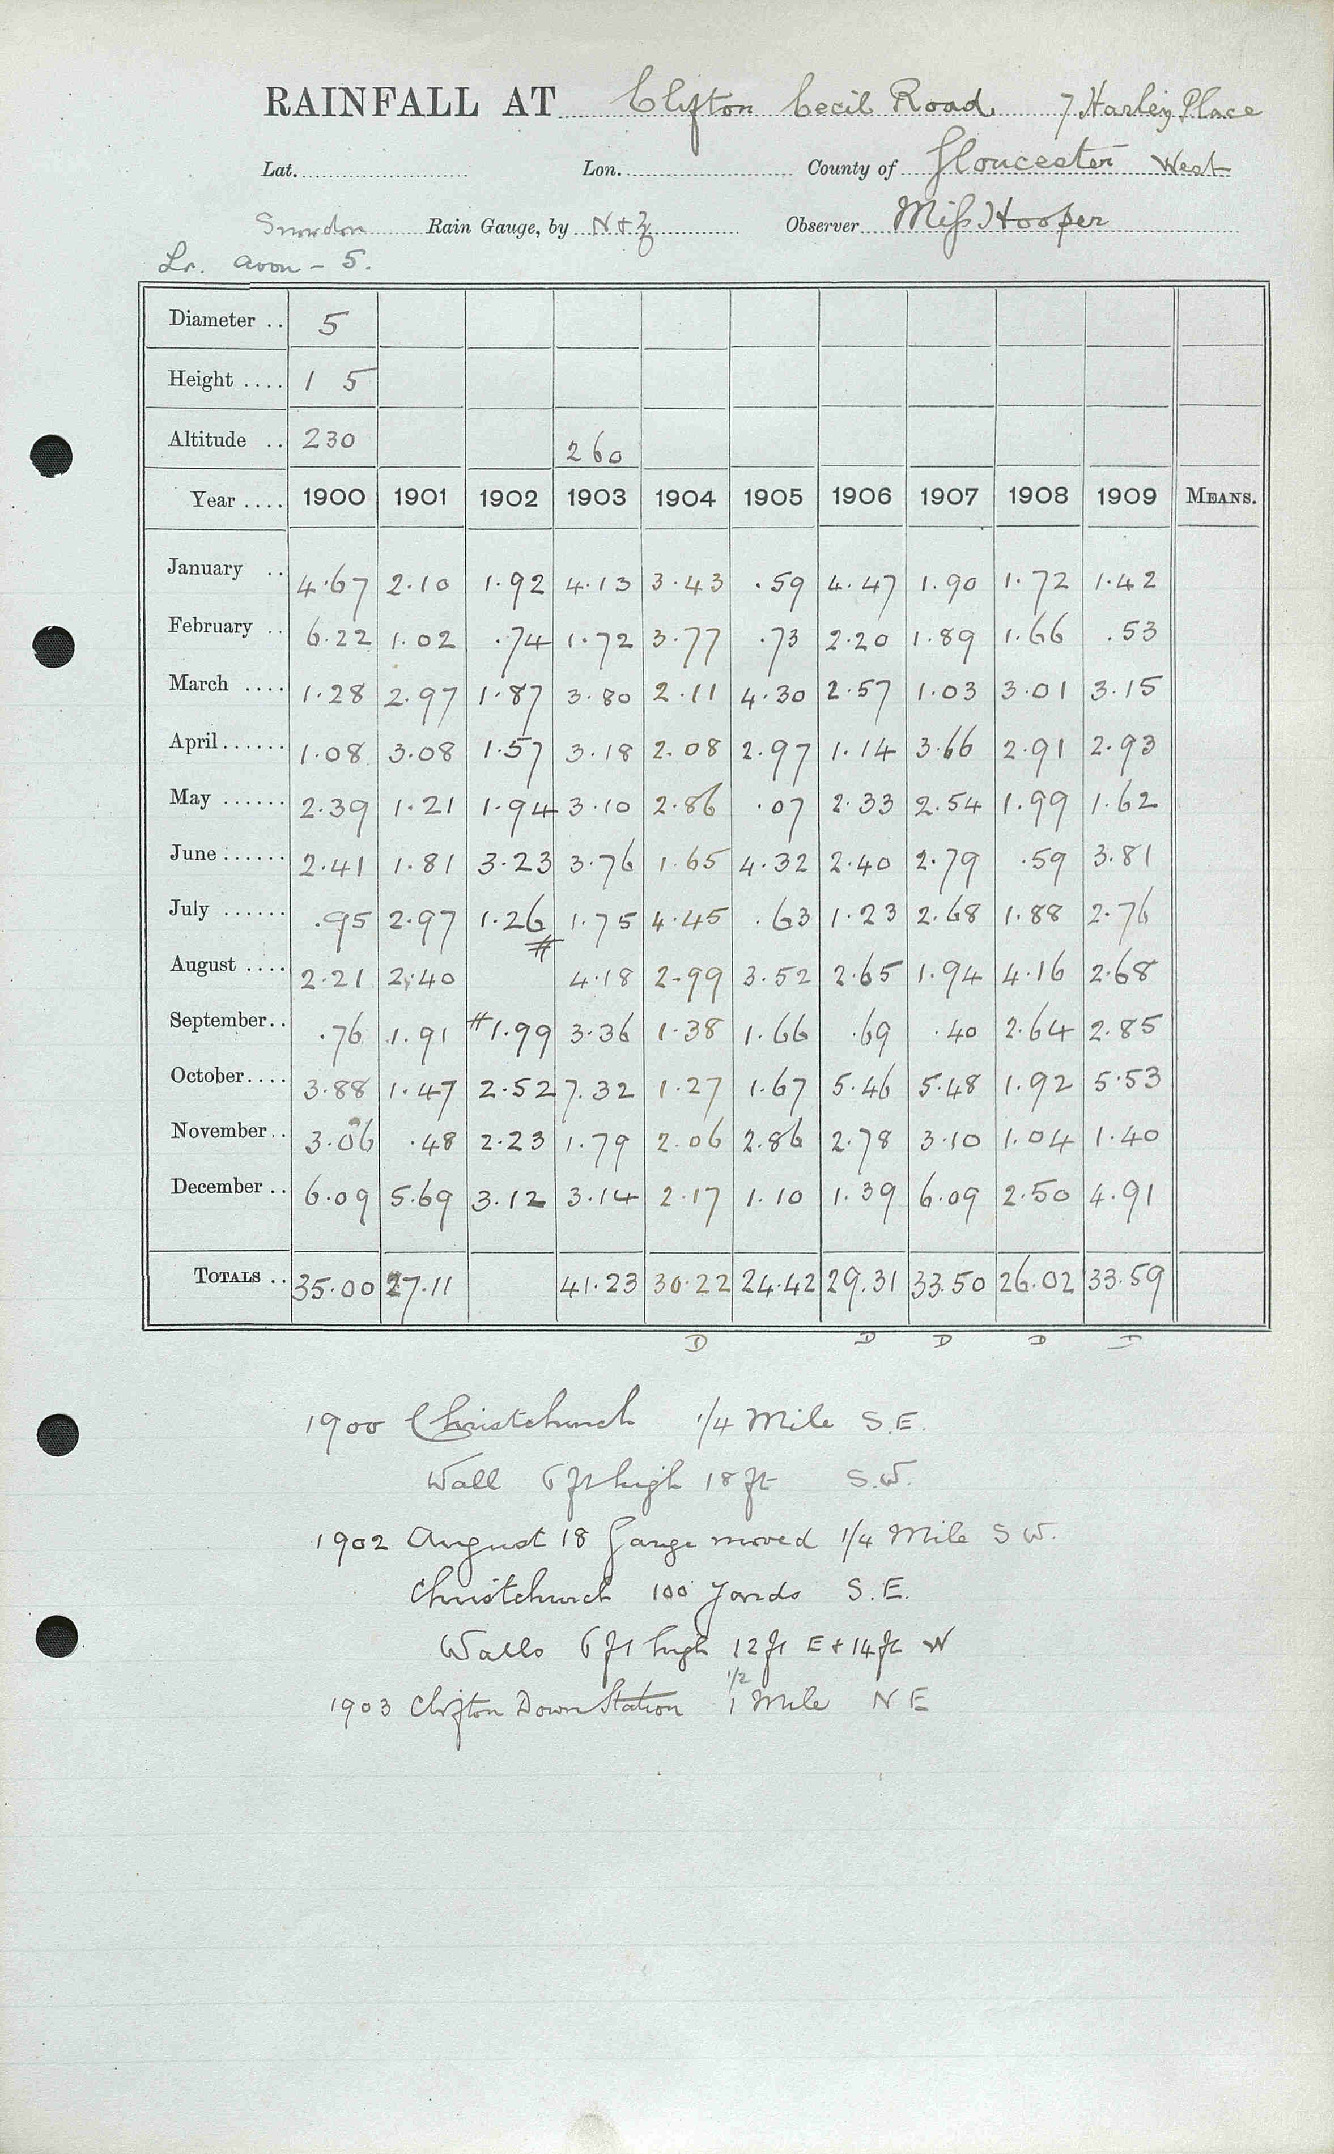 RAINFALL AT Clifton Cecil Road 7 Harley Place
Lat. Lon. County of Gloucester West
Snowdon Rain Gauge, by N & Z Observer Miss Hooper
Lr. Avon - 5.
Diameter .. 5
Height .... 1 5
Altitude .. 230 260
Year .... 1900 1901 1902 1903 1904 1905 1906 1907 1908 1909 MEANS.
January .. 4.67 2.10 1.92 4.13 3.43 .59 4.47 1.90 1.72 1.42
February .. 6.22 1.02 .74 1.72 3.77 .73 2.20 1.89 1.66 .53
March .... 1.28 2.97 1.87 3.80 2.11 4.30 2.57 1.03 3.01 3.15
April...... 1.08 3.08 1.57 3.18 2.08 2.97 1.14 3.66 2.91 2.93
May ...... 2.39 1.21 1.94 3.10 2.86 .07 2.33 2.54 1.99 1.62
June ...... 2.41 1.81 3.23 3.76 1.65 4.32 2.40 2.79 .59 3.81
July ...... .95 2.97 1.26 1.75 4.45 .63 1.23 2.68 1.88 2.76
August .... 2.21 2.40 # 4.18 2.99 3.52 2.65 1.94 4.16 2.68
September.. .76 1.91 #1.99 3.36 1.38 1.66 .69 .40 2.64 2.85
October.... 3.88 1.47 2.52 7.32 1.27 1.67 5.46 5.48 1.92 5.53
November.. 3.06 .48 2.23 1.79 2.06 2.86 2.78 3.10 1.04 1.40
December .. 6.09 5.69 3.12 3.14 2.17 1.10 1.39 6.09 2.50 4.91
TOTALS .. 35.00 27.11 41.23 30.22 24.42 29.31 33.50 26.02 33.59
D D D D
1900 Christchurch 1/4 Mile S.E.
Wall 6 ft high 18 ft S.W.
1902 August 18 Gauge moved 1/4 Mile S W.
Christchurch 100 Yards S.E.
Walls 6 ft high 12 ft E + 14 ft W
1/2
1903 Clifton Down Station 1 Mile N E